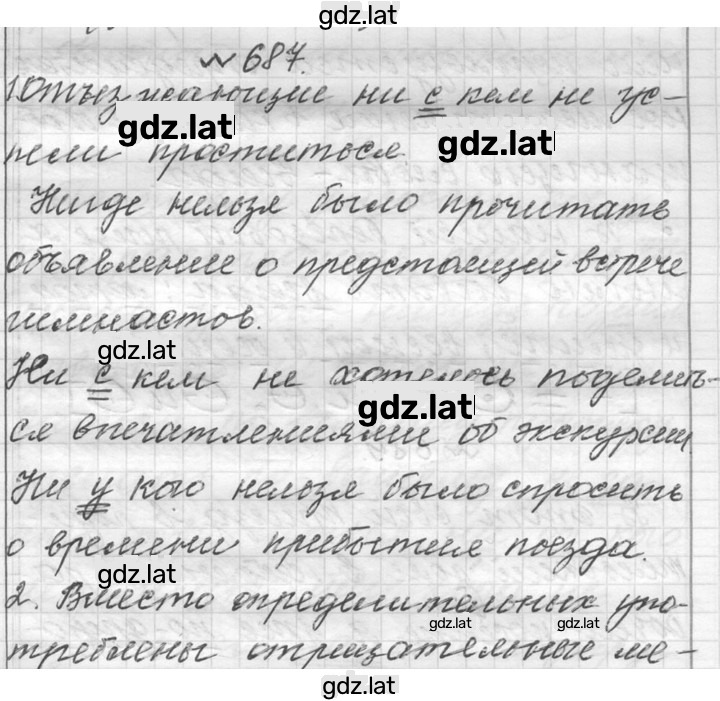 gdz.lat
№ 687.
1. Отъезжающие ни с кем не ус-
gdz.lat
gdz.lat
пели проститься.
Нигде нельзя было прочитать
объявление о предстоящей встрече
гимнастов.
gdz.lat
Ни с кем не хотелось поделить-
gdz.lat
ся впечатлениями об экскурсии.
Ни у кого нельзя было спросить
о времени прибытия поезда.
gdz.lat
2. Вместо определительных упо-
gdz.lat gdz.lat
треблены отрицательные ме-
gdz.lat